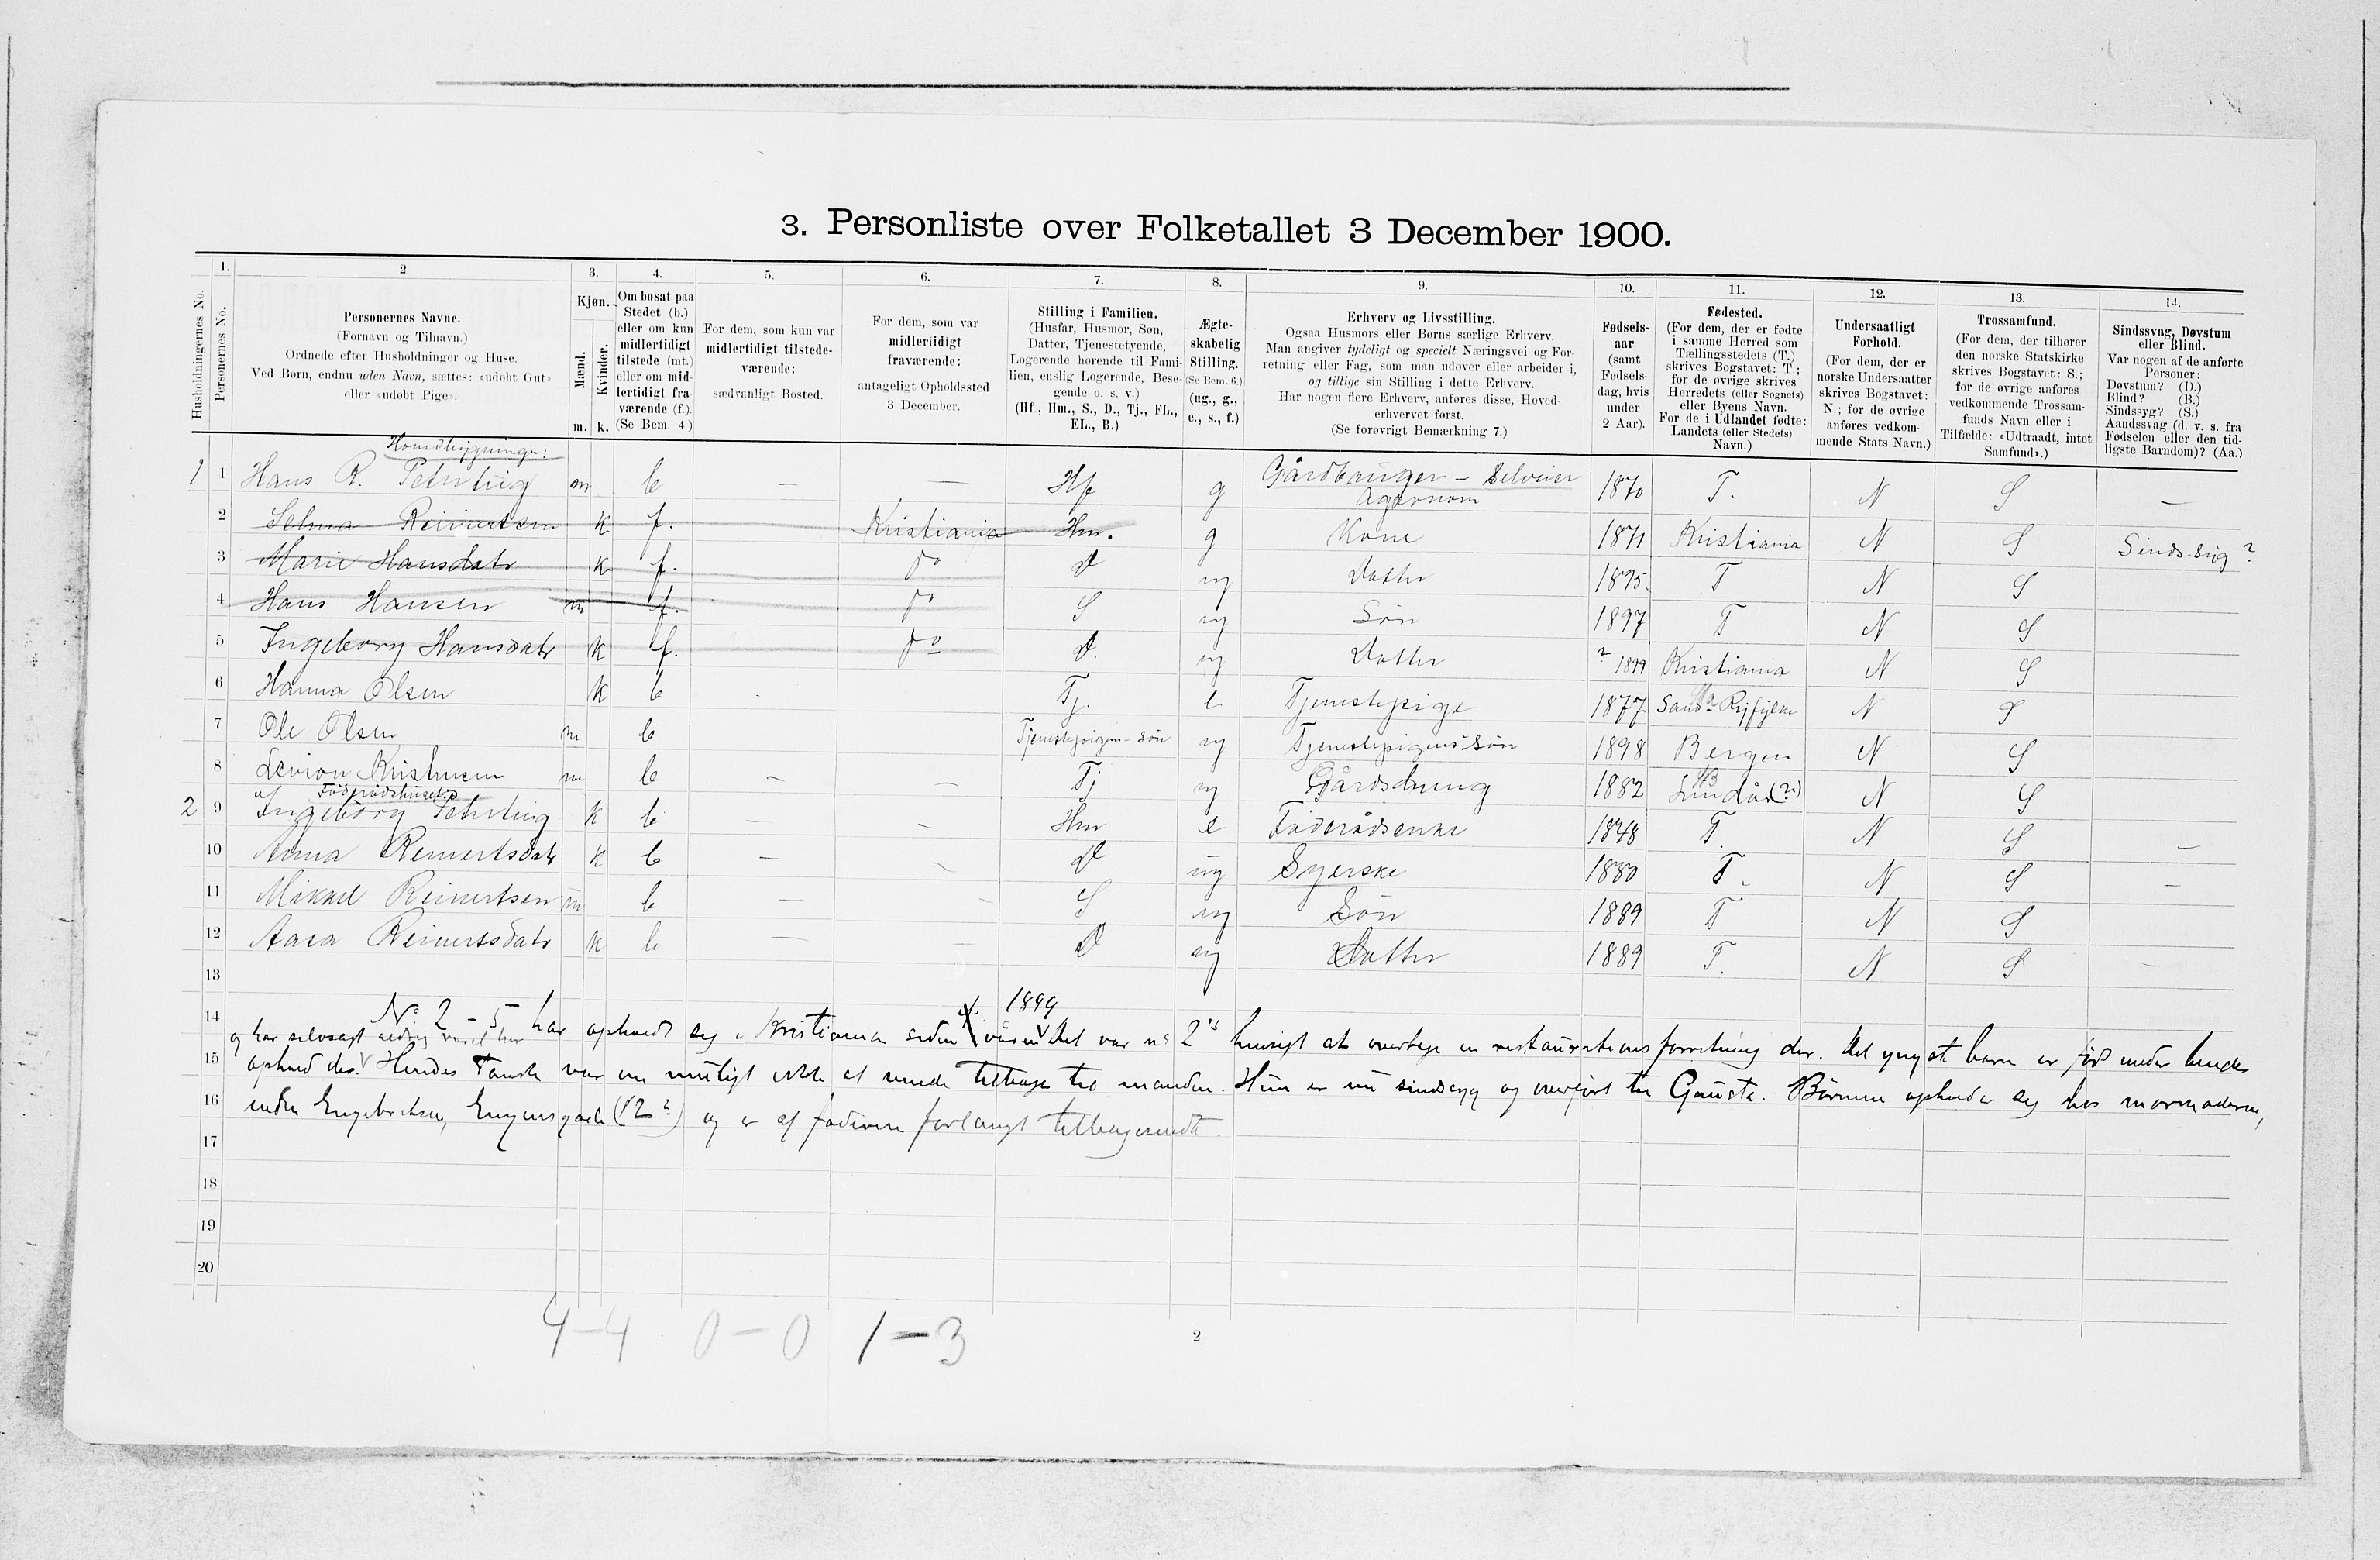 3. Personliste over Folketallet 3 December 1900.
1. 2 3. 4. 5. 6. 7. 8. 9. 10. 11. 12. 13. 14.
Husholdningernes No.
Personernes No.
Personernes Navne.
(Fornavn og Tilnavn.)
Ordnede efter Husholdninger og Huse.
Ved Børn, endnu uden Navn, sættes: «udøbt Gut»
eller «udøbt Pige».
Kjøn.
Mænd.
Kvinder.
m. k.
Om bosat paa
Stedet (b.)
eller om kun
midlertidigt
tilstede (mt.)
eller om mid-
lertidigt fra-
værende (f.).
(Se Bem. 4.)
For dem, som kun var
midlertidigt tilstede-
værende:
sædvanligt Bosted.
For dem, som var
midlertidigt
fraværende:
antageligt Opholdssted
3 December.
Stilling i Familien.
(Husfar, Husmor, Søn,
Datter, Tjenestetyende,
Logerende hørende til Fami-
lien, enslig Logerende, Besø-
gende o. s. v.)
(Hf., Hm., S., D., Tj., FL.,
EL., B.)
Ægte-
skabelig
Stilling.
(Se Bem. 6.)
(ug., g.,
e., s., f.)
Erhverv og Livsstilling.
Ogsaa Husmors eller Børns særlige Erhverv.
Man angiver tydeligt og specielt Næringsvei og For-
retning eller Fag, som man udøver eller arbeider i,
og tillige sin Stilling i dette Erhverv.
Har nogen flere Erhverv, anføres disse, Hoved-
erhvervet først.
(Se forøvrigt Bemærkning 7.)
Fødsels-
aar
(samt
Fødsels-
dag, hvis
under
2 Aar).
Fødested.
(For dem, der er fødte
i samme Herred som
Tællingsstedets (T.)
skrives Bogstavet: T.;
for de øvrige skrives
Herredets (eller Sognets)
eller Byens Navn.
For de i Udlandet fødte:
Landets (eller Stedets)
Navn.)
Undersaatligt
Forhold.
(For dem, der er
norske Undersaatter
skrives Bogstavet:
N.; for de øvrige
anføres vedkom-
mende Stats Navn.)
Trossamfund.
(For dem, der tilhører
den norske Statskirke
skrives Bogstavet: S.;
for de øvrige anføres
vedkommende Trossam-
funds Navn eller i
Tilfælde: «Udtraadt, intet
Samfund».)
Sindssvag, Døvstum
eller Blind.
Var nogen af de anførte
Personer:
Døvstum? (D.)
Blind? (B.)
Sindssyg? (S.)
Aandssvag (d. v. s. fra
Fødselen eller den tid-
ligste Barndom)? (Aa.)
1 1 Hans R. m b — — Hf g Gårdbruger – Selveier 1870 T. N S —
Agronom
2 Selma Reinertsen k f. Kristiania Hm. g Kone 1871 Kristiania N S Sindssyg?
3 Marie Hansdatr k f. do D ug Datter 1895. T N S
4 Hans Hansen m f. do S ug Søn 1897 T N S
5 Ingeborg Hansdatr k f. do D. ug Datter ? 1899 Kristiania N S
6 Hanna Olsen k b Tj. e Tjenestepige 1877 Sand Ryfylke N S
7 Ole Olsen m b Tjenestepigens-søn ug Tjenestepigens søn 1898 Bergen N S
8 m b – — Tj ug Gårdsdreng 1882 N S
Føderådshuset:
2 9 Ingeborg k b – – Hm e Føderådsenke 1848 T. N S –
10 Anna Reinertsdatr k b – – D ug Syerske 1880 T. N S –
11 Mikkel Reinertsen m b — – S ug Søn 1889 T N S
12 Aasa Reinertsdatr k b — – D ug Datter 1889 T. N S –
13
1899
14 No 2 – 5 har opholdt sig i Kristiania siden våren Det var no 2's hensigt at overtage en restaurationsforretning der. Det yngst barn er født under hendes
og har selvsagt aldrig været her
15 ophold der. Hendes Tanke var om muligt ikke at vende tilbage til manden. Hun er nu sindssyg og overført til Gausta. Børnene opholder sig hos mormoderen,
16 Engebretsen, (12?) og er af faderen forlangt tilbagesendt.
17
18
19
20
4–4 0–0 1–3
2